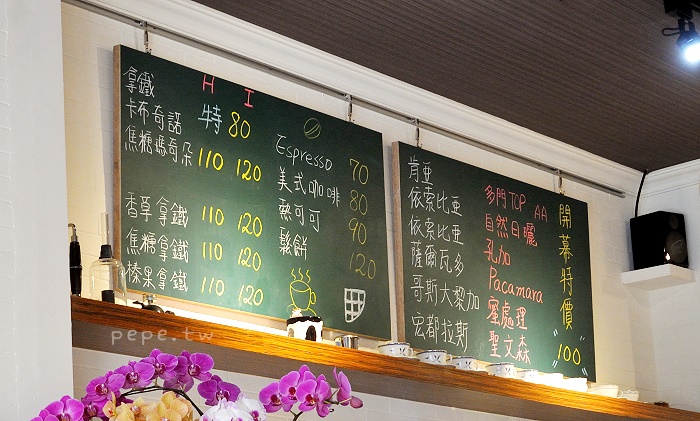 H I
拿鐵
卡布奇諾 特 80
焦糖瑪奇朵 110 120
香草拿鐵 110 120
焦糖拿鐵 110 120
榛果拿鐵 110 120
Espresso 70
美式咖啡 80
熱可可 90
鬆餅 120
肯亞 多門TOP AA
依索比亞 自然日曬
依索比亞 孔加
薩爾瓦多 Pacamara
哥斯大黎加 蜜處理
宏都拉斯 聖文森
開幕特價
"100"
pepe.tw